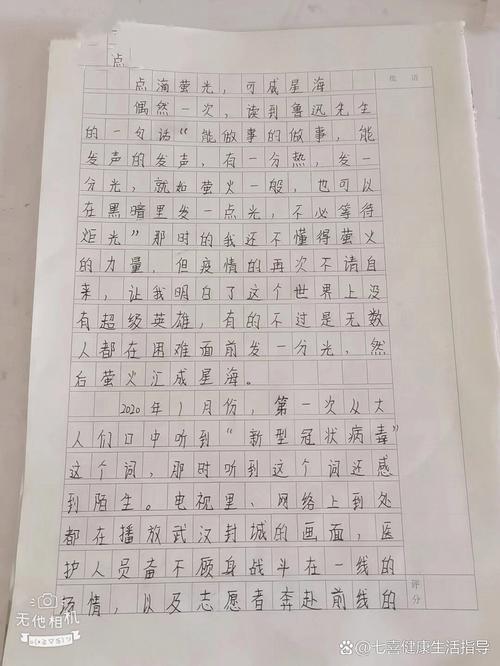 点
批语
点滴萤光，可成星海
偶然一次，读到鲁迅先生
的一句话“能做事的做事，能
发声的发声，有一分热，发一
分光，就如萤火一般，也可以
在黑暗里发一点光，不必等待
炬光”那时的我还不懂得萤火
的力量，但疫情的再次不请自
来，让我明白了这个世界上没
有超级英雄，有的不过是无数
人都在困难面前发一分光，然
后萤火汇成星海。
2020年1月份，第一次从大
人们口中听到“新型冠状病毒”
这个词，那时听到这个词还感
到陌生。电视里、网络上到处
都在播放武汉封城的画面，医
护人员奋不顾身战斗在一线的
场情，以及志愿者奔赴前线的
评分
无他相机
@七喜健康生活指导